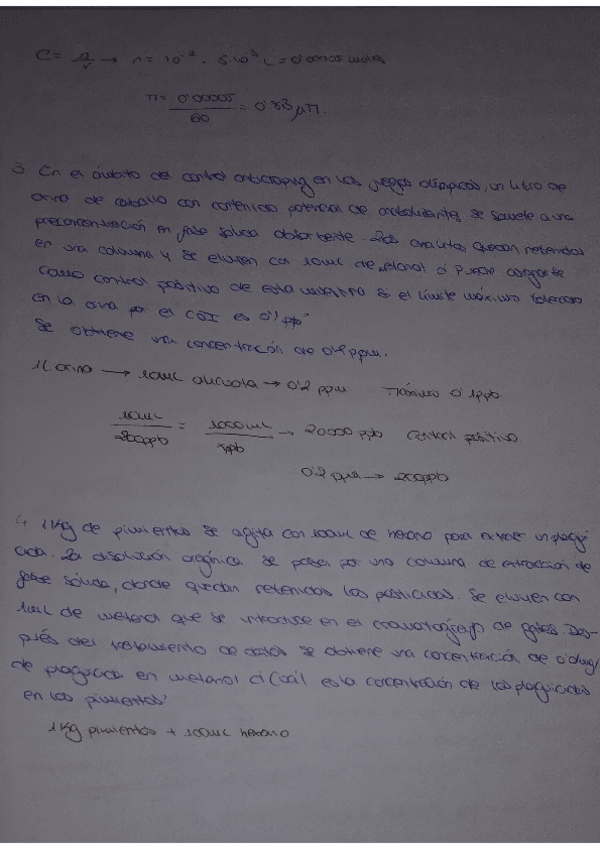 C = n/v → n = 10⁻² · 5·10⁻³ L = 0'00005 moles
M = 0'00005 / 60 = 0'83 μM.
3 En el ámbito del control antidroping en los juegos olímpicos, un litro de
orina de caballo con contenido potencial de anabolizantes, se somete a una
preconcentración en fase sólida absorbente. Los analitos quedan retenidos
en una columna y se eluyen con 10mL de metanol ¿Puede cargarte
como control positivo de esta muestra si el límite máximo tolerado
en la orina por el COI es 0'1 ppb?
Se obtiene una concentración de 0'2 ppm.
1L orina → 10mL alícuota → 0'2 ppm Máximo 0'1 ppb.
10mL / 200ppb = 1000mL / xppb → 20000 ppb control positivo.
0'2 ppm → 200ppb
4 1Kg de pimientos se agita con 100mL de hexano para extraer un plagui
cida. La disolución orgánica se pasa por una columna de extracción de
fase sólida, donde quedan retenidos los pesticidas. Se eluyen con
1mL de metanol que se introduce en el cromatógrafo de gases. Des-
pués del tratamiento de datos se obtiene una concentración de
de plaguicida en metanol ¿Cuál es la concentración de los plaguicidas
en los pimientos?
1 Kg pimientos + 100mL hexano